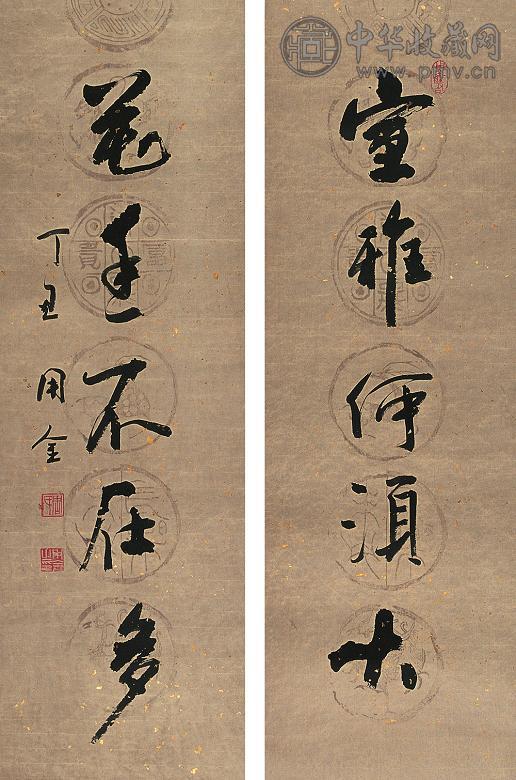 中华收藏网
www.pmv.cn
室雅何須大
花香不在多
丁丑